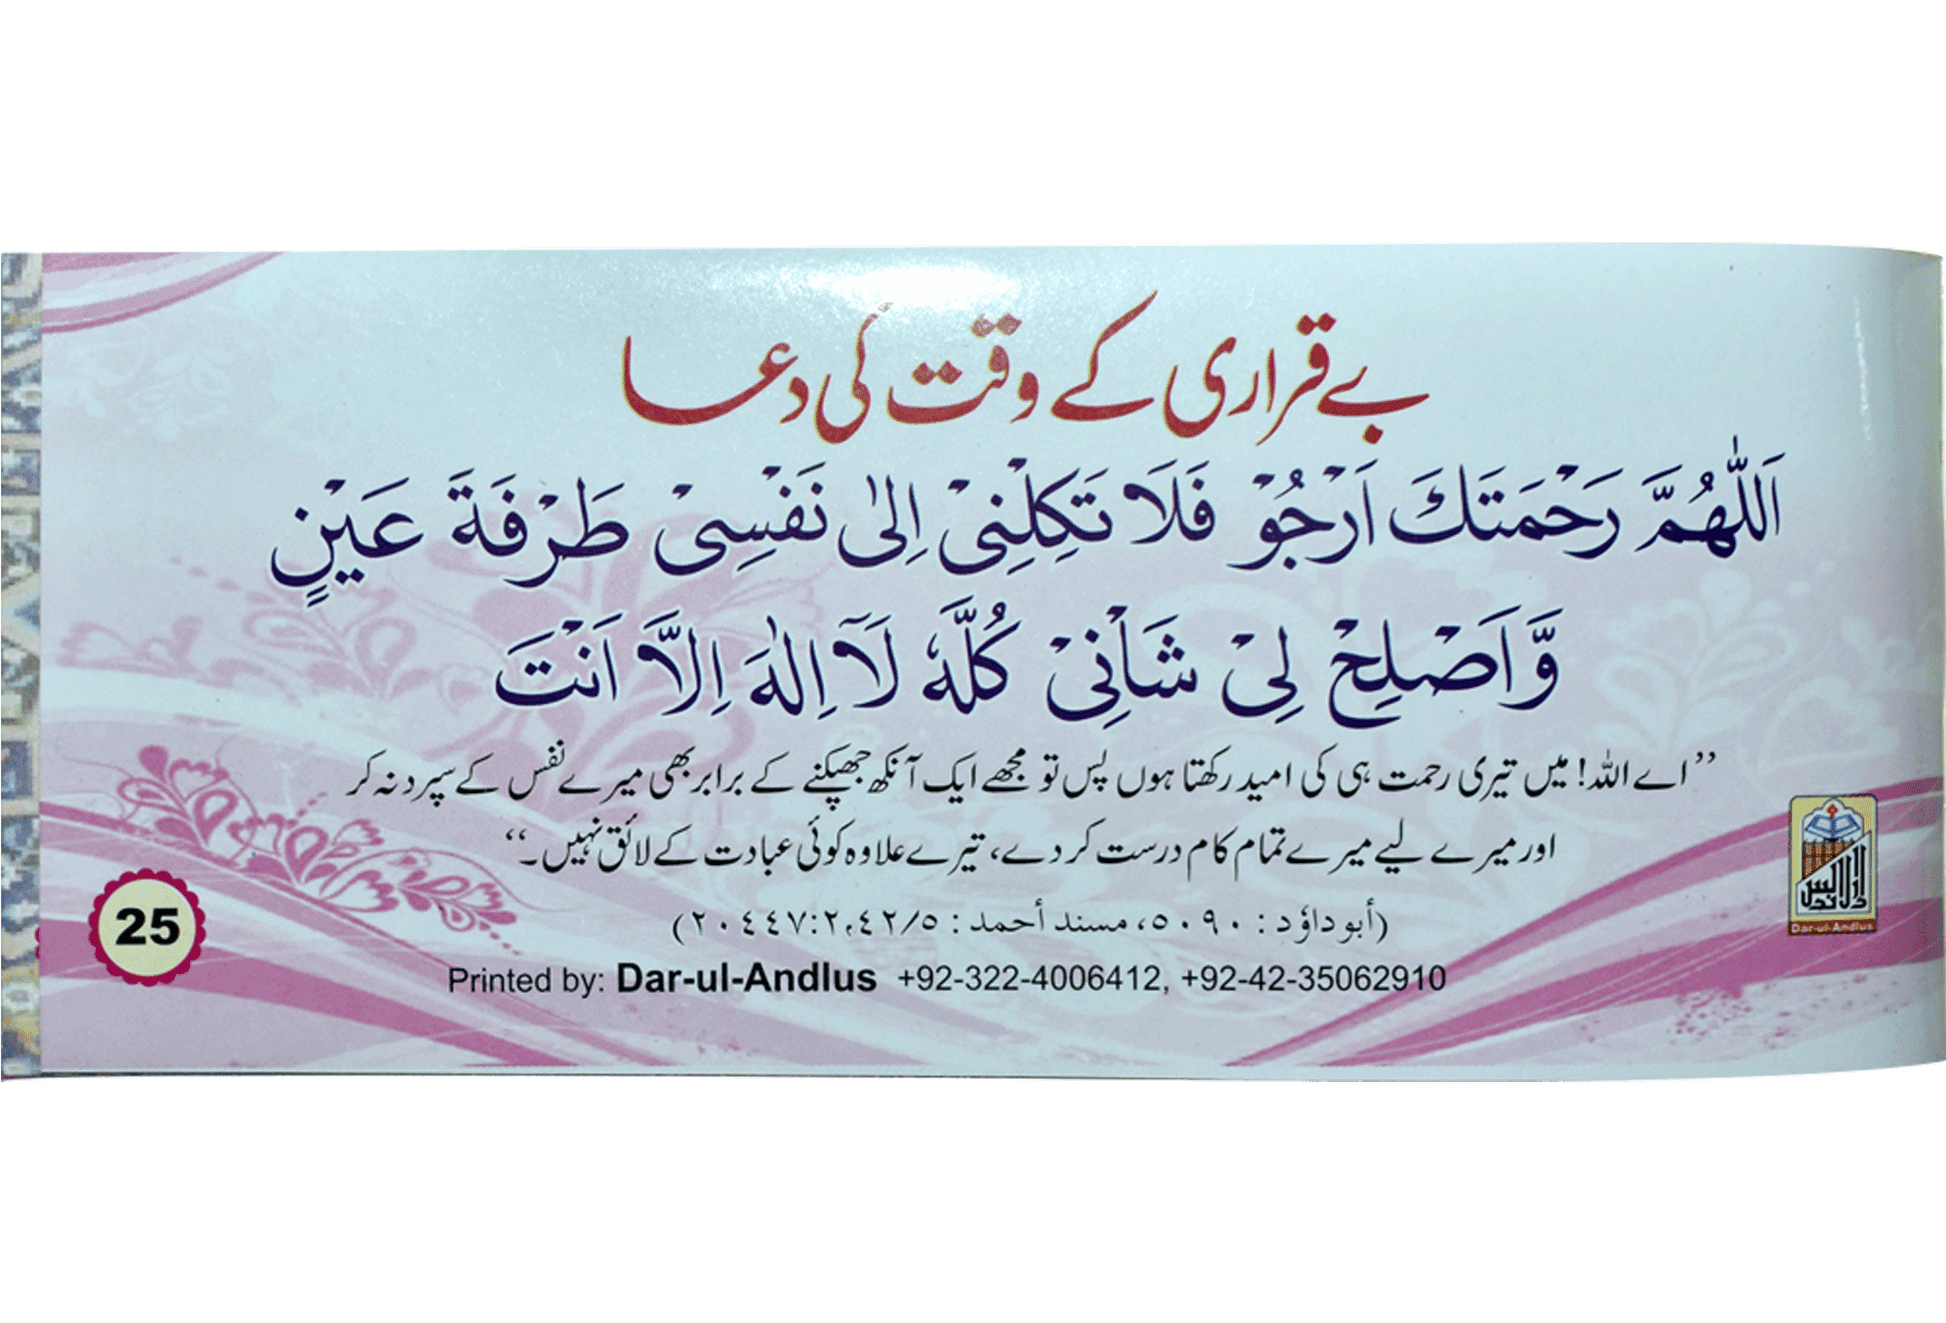 بے قراری کے وقت کی دعا
اَللّٰهُمَّ رَحْمَتَكَ اَرْجُوْ فَلَا تَكِلْنِیْ اِلٰی نَفْسِیْ طَرْفَةَ عَيْنٍ
وَّاَصْلِحْ لِیْ شَاْنِیْ كُلَّهٗ لَآ اِلٰهَ اِلَّا اَنْتَ
”اے اللہ! میں تیری رحمت ہی کی امید رکھتا ہوں پس تو مجھے ایک آنکھ جھپکنے کے برابر بھی میرے نفس کے سپرد نہ کر
اور میرے لیے میرے تمام کام درست کر دے، تیرے علاوہ کوئی عبادت کے لائق نہیں۔“
(أبو داؤد: ٥٠٩٠، مسند أحمد: ٤٢/٥،٢٠٤٤٧:٢)
Printed by: Dar-ul-Andlus +92-322-4006412, +92-42-35062910
25
دارالاندلس
Dar-ul-Andlus